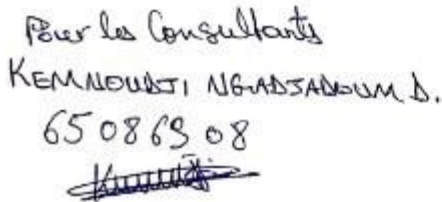 Pour les Consultants
KEMNOUDJI NGADJADOUM D.
65 08 69 08